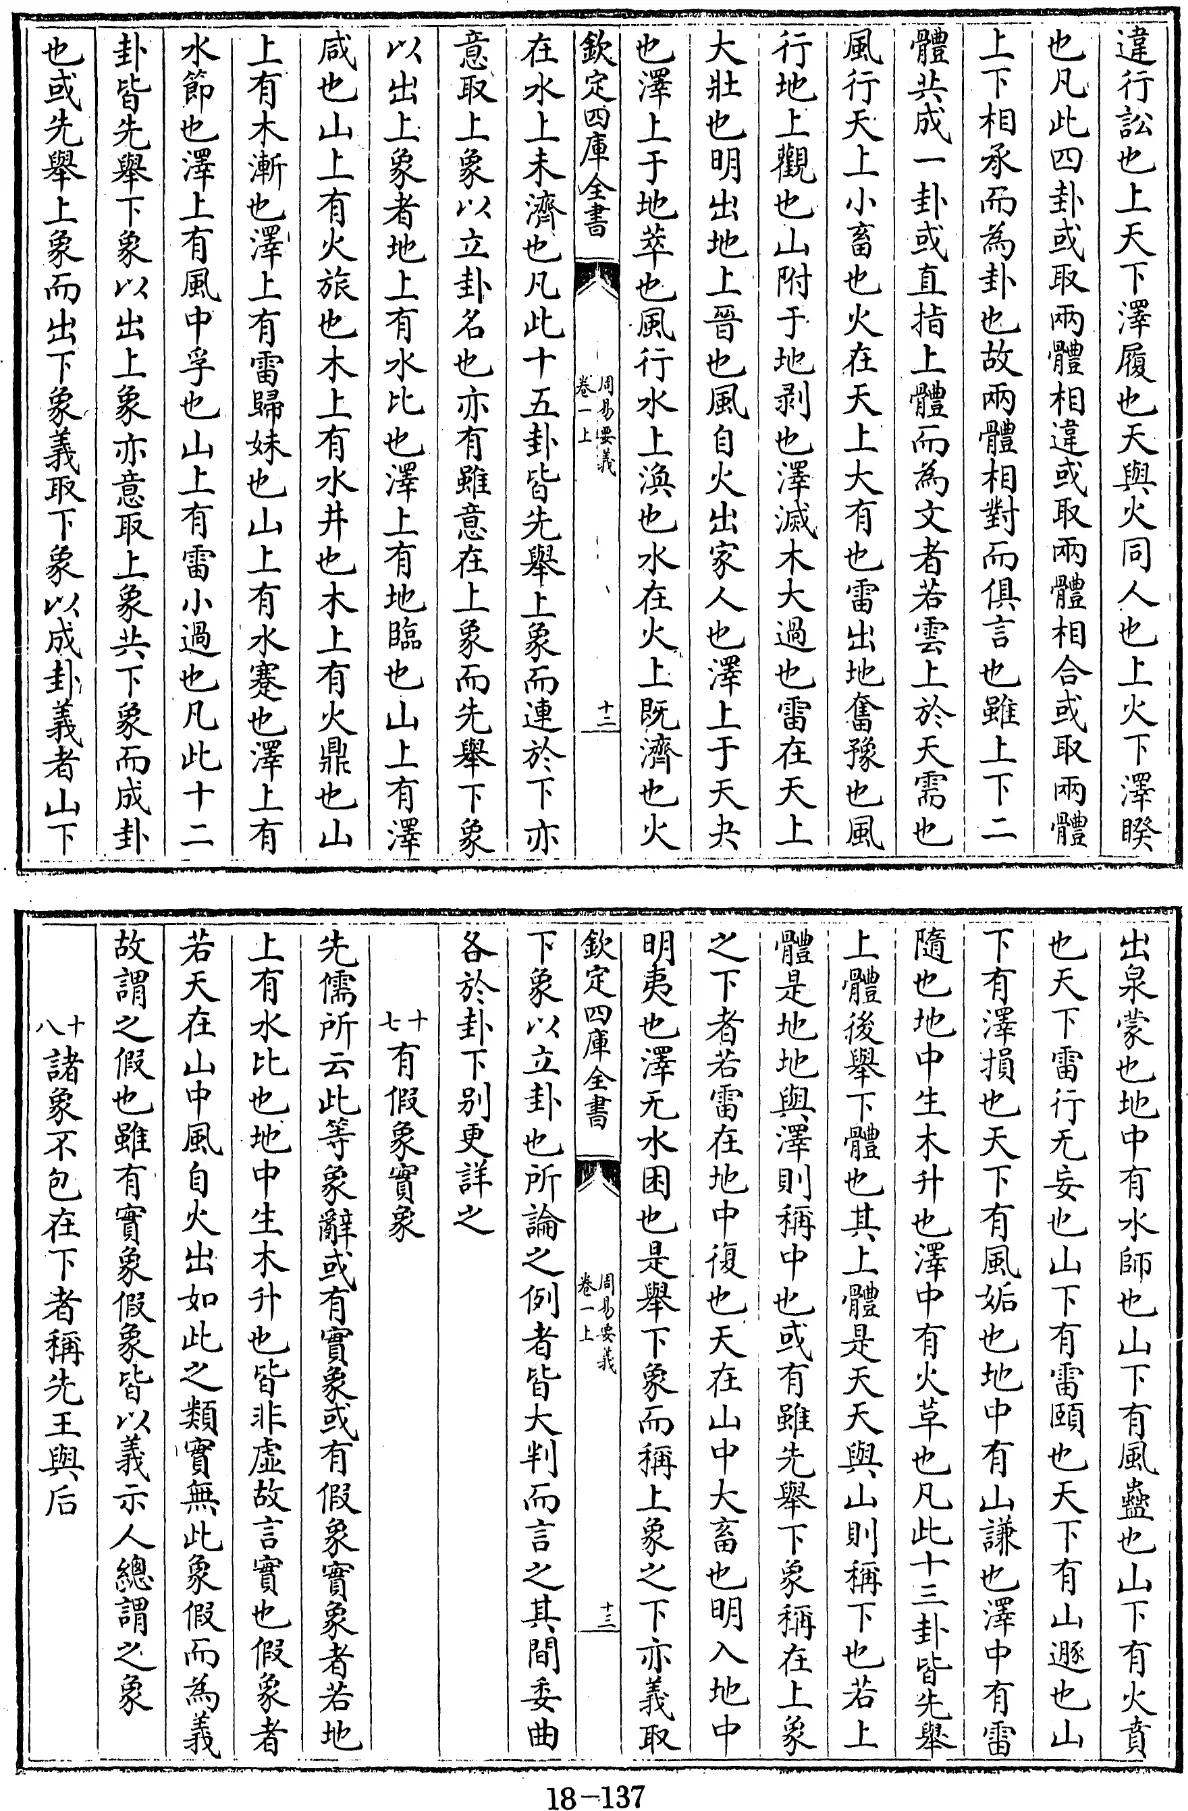 違行訟也上天下澤履也天與火同人也上火下澤睽
也凡此四卦或取兩體相違或取兩體相合或取兩體
上下相承而為卦也故兩體相對而俱言也雖上下二
體共成一卦或直指上體而為文者若雲上於天需也
風行天上小畜也火在天上大有也雷出地奮豫也風
行地上觀也山附于地剥也澤滅木大過也雷在天上
大壯也明出地上晉也風自火出家人也澤上于天夬
也澤上于地萃也風行水上渙也水在火上既濟也火
欽定四庫全書
周易要義
卷一上
十二
在水上未濟也凡此十五卦皆先舉上象而連於下亦
意取上象以立卦名也亦有雖意在上象而先舉下象
以出上象者地上有水比也澤上有地臨也山上有澤
咸也山上有火旅也木上有水井也木上有火鼎也山
上有木漸也澤上有雷歸妹也山上有水蹇也澤上有
水節也澤上有風中孚也山上有雷小過也凡此十二
卦皆先舉下象以出上象亦意取上象共下象而成卦
也或先舉上象而出下象義取下象以成卦義者山下
出泉蒙也地中有水師也山下有風蠱也山下有火賁
也天下雷行无妄也山下有雷頤也天下有山遯也山
下有澤損也天下有風姤也地中有山謙也澤中有雷
隨也地中生木升也澤中有火革也凡此十三卦皆先舉
上體後舉下體也其上體是天天與山則稱下也若上
體是地地與澤則稱中也或有雖先舉下象稱在上象
之下者若雷在地中復也天在山中大畜也明入地中
明夷也澤无水困也是舉下象而稱上象之下亦義取
欽定四庫全書
周易要義
卷一上
十三
下象以立卦也所論之例者皆大判而言之其間委曲
各於卦下别更詳之
十七有假象實象
先儒所云此等象辭或有實象或有假象實象者若地
上有水比也地中生木升也皆非虚故言實也假象者
若天在山中風自火出如此之類實無此象假而為義
故謂之假也雖有實象假象皆以義示人總謂之象
十八諸象不包在下者稱先王與后
18-137